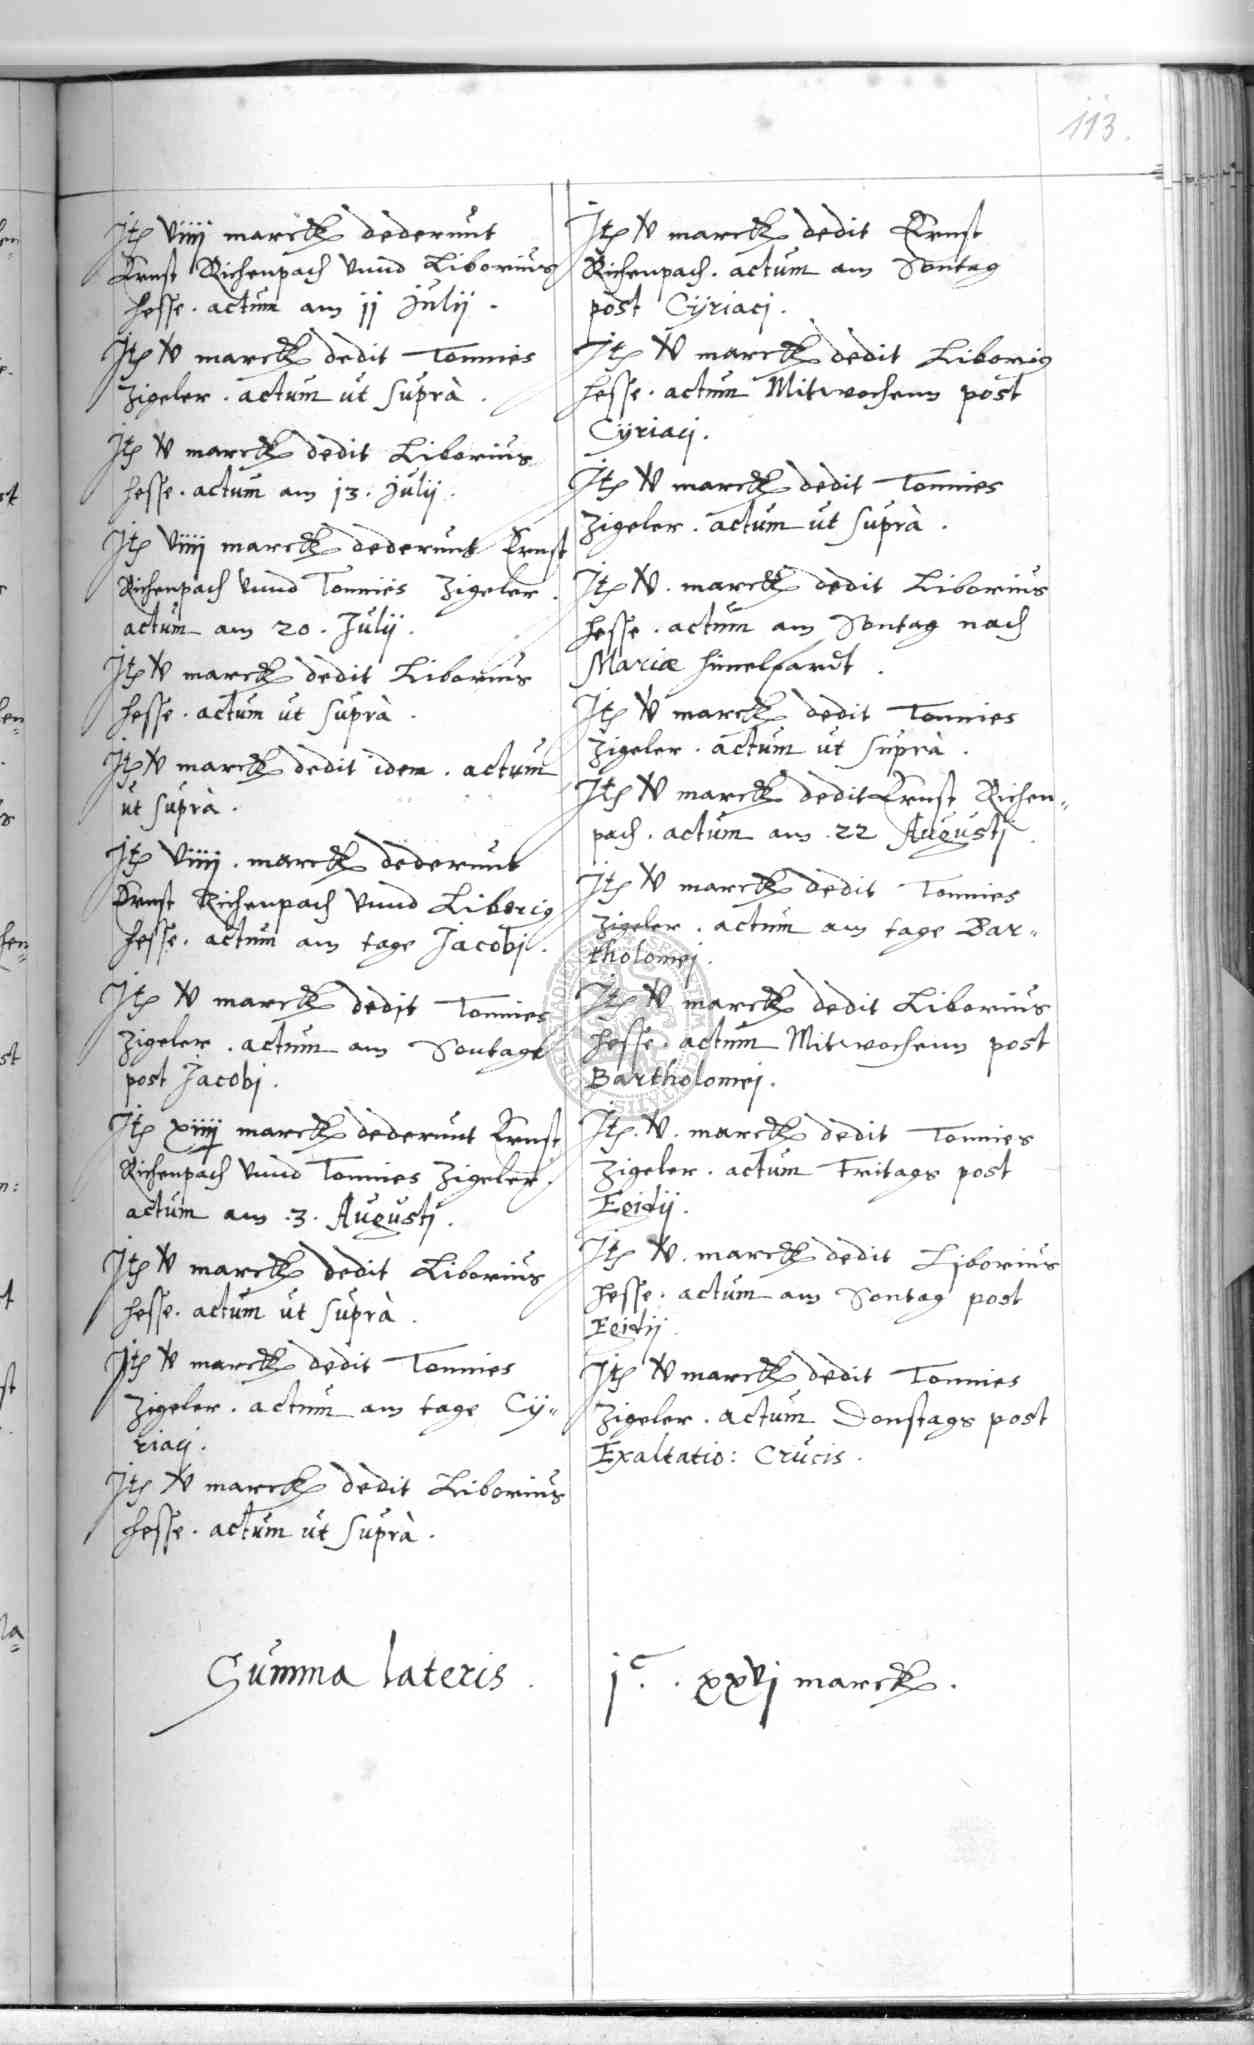 113.
Itẽ viiij marck dederunt
Ernst Richenpach vnnd Liborius
Hesse. actum am jj Julij.
Itẽ v̵ marck dedit Tonnies
Zigeler. actum ut suprà.
Itẽ v̵ marck dedit Liborius
Hesse. actum am j3. Julij.
Itẽ viiij marck dederunt Ernst
Richenpach vnnd Tonnies Zigeler.
actum am 20. Julij.
Itẽ v̵ marck dedit Liborius
Hesse. actum ut suprà.
Itẽ v̵ marck dedit idem. actum
ut suprà.
Itẽ viiij. marck dederunt
Ernst Richenpach vnnd Liboriꝰ
Hesse. actum am tage Jacobj.
Itẽ v̵ marck dedit Tonnies
Zigeler. actum am Sontage
post Jacobj.
Itẽ xiiij̵ marck dederunt Ernst
Richenpach vnnd Tonnies Zigeler.
actum am .3. Augustj.
Itẽ v̵ marck dedit Liborius
Hesse. actum ut suprà.
Itẽ v̵ marck dedit Tonnies
Zigeler. actum am tage Cÿ=
riacj.
Itẽ v̵ marck dedit Liborius
Hesse. actum ut suprà.
Itẽ v̵ marck dedit Ernst
Richenpach. actum am Sontag
post Cÿriacj.
Itẽ v̵ marck dedit Liboriꝰ
Hesse. actum Mitwochenn post
Cÿriacj.
Itẽ v̵ marck dedit Tonnies
Zigeler. actum ut suprà.
Itẽ v̵. marck dedit Liborius
Hesse. actum am Sontag nach
Mariæ himelfardt.
Itẽ v̵ marck dedit Tonnies
Zigeler. actum ut suprà.
Itẽ v̵ marck dedit Ernst Richen=
pach. actum am .22 Augustj.
Itẽ v̵ marck dedit Tonnies
Zigeler. actum am tage Bar=
tholomej.
Itẽ v̵ marck dedit Liborius
Hesse. actum Mitwochenn post
Bartholomej.
Itẽ. v̵. marck dedit Tonnies
Zigeler. actum Fritags post
Egidij.
Itẽ v̵. marck dedit Liborius
Hesse. actum am Sontag post
Egidij.
Itẽ v̵ marck dedit Tonnies
Zigeler. actum Donstags post
Exaltatio: Crucis.
Summa lateris. jᶜ. xxvj marck.